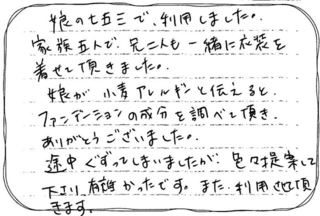 娘の七五三で、利用しました。
家族五人で、兄二人も一緒に衣装を
着せて頂きました。
娘が小麦アレルギーと伝えると
ファンデーションの成分を調べて頂き、
ありがとうございました。
途中ぐずってしまいましたが、色々提案して
下さり、有難かったです。また、利用させて頂
きます。